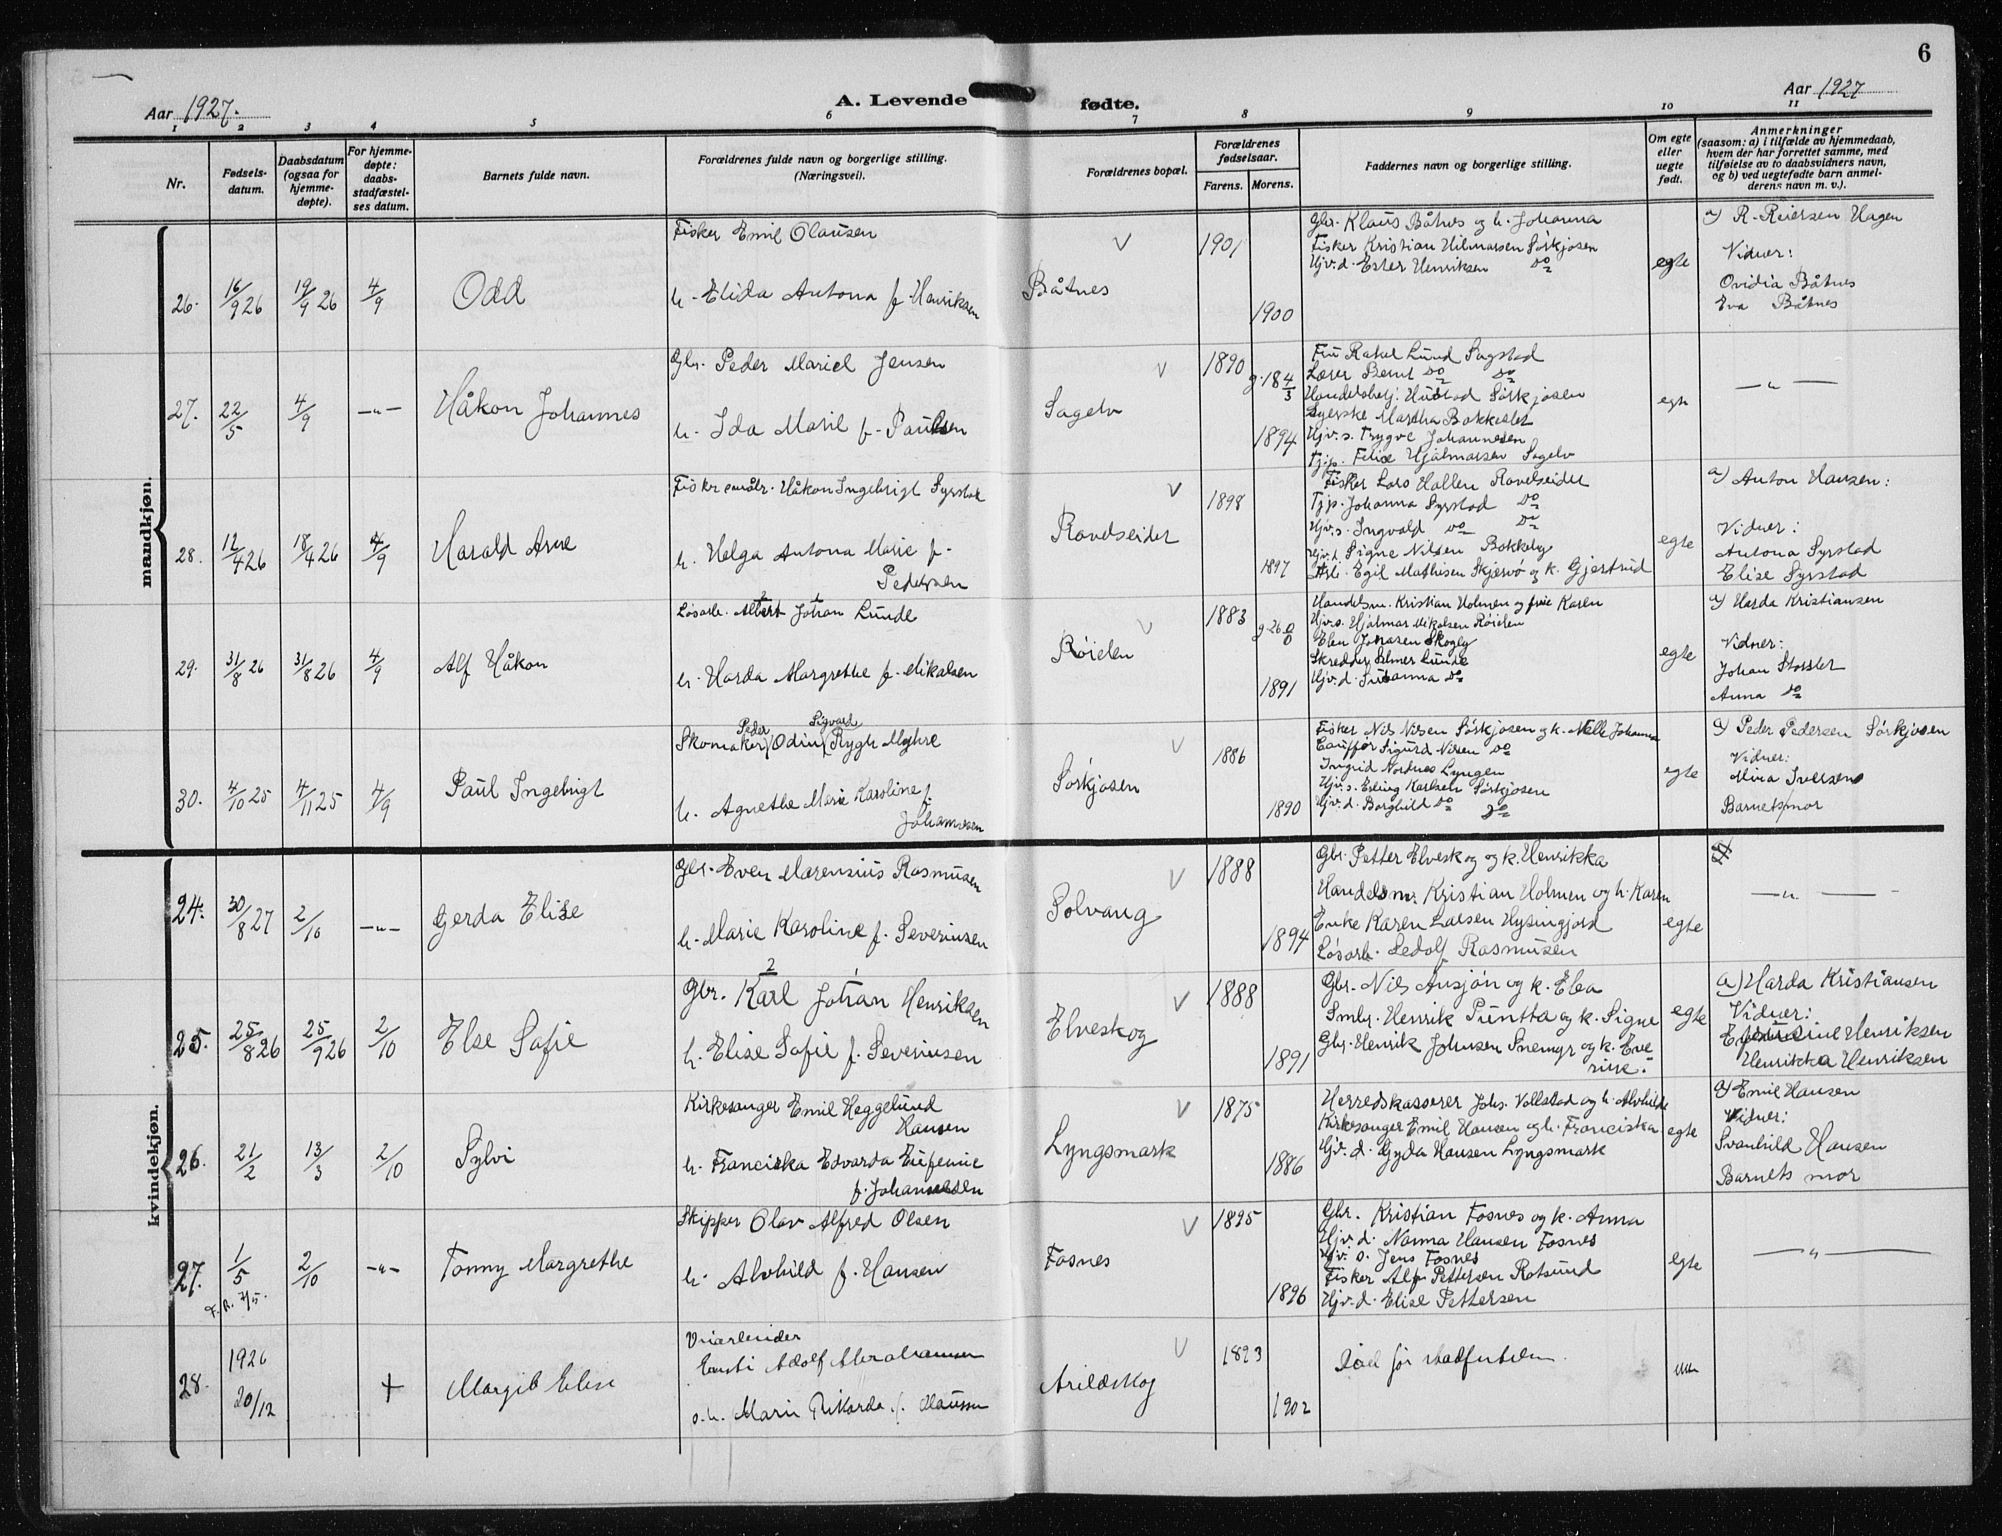 6
Aar 1927.
A. Levende fødte.
Aar 1927
1 2 3 4 5 6 7 8 9 10 11
Nr.
Fødsels-
datum.
Daabsdatum
(ogsaa for
hjemme-
døpte).
For hjemme-
døpte:
daabs-
stadfæstel-
ses datum.
Barnets fulde navn.
Forældrenes fulde navn og borgerlige stilling.
(Næringsvei).
Forældrenes bopæl.
Forældrenes
fødselsaar.
Farens. Morens.
Faddernes navn og borgerlige stilling.
Om egte
eller
uegte
født.
Anmerkninger
(saasom: a) i tilfælde av hjemmedaab,
hvem der har forrettet samme, med
tilføielse av to daabsvidners navn,
og b) ved uegtefødte barn anmel-
derens navn m. v.).
mandkjøn.
26. 16/9 26 19/9 26 4/9 Odd
Fisker Emil Olausen
h. Elida Antona f. Henriksen
Båtnes
1901
1900
Gbr. Klaus Båtnes og h. Johanna
Fisker Kristian Hilmarsen Sørkjosen
Hjv.d. Ester Henriksen do
egte
a) R. Reiersen Hagen
Vidner:
Ovidia Båtnes
Eva Båtnes
27. 22/5 4/9 -"- Håkon Johannes
Gbr. Peder Mariel Jensen
h. Ida Maril f. Paulsen
Sagelv
1890
g. 18 4/3
1894
Fru Rakel Lund Sagstad
Lærer Bernt do do
Sørkjosen
Martha
Hjv.s. Trygve Johannesen
Hjalmarsen Sagelv
egte
- " -
28. 12/4 26 18/4 26 4/9 Harald Arne
Håkon Ingebrigt Syrstad
h. Helga Antona Marie f.
Pedersen
Ravelseidet
1898
1897
Fisker Lars Hallen Ravelseidet
Tjp. Johanna Syrstad do
Hjv.s. Ingvald do do
Hjv.d. Signe Nilsen Bokkelv
Arb. Egil Mathisen Skjervø og k. Gjertrud
egte
a) Anton Hansen:
Vidner:
Antona Syrstad
Elise Syrstad
29. 31/8 26 31/8 26 4/9 Alf Håkon
Løsarb. Albert Johan Lunde
h. Harda Margrethe f. Mikalsen
Røielen
1883
g. 26 0/0
1891
Handelsm. Kristian Holmen og frue Karen
Hjv.s. Hjalmar Mikalsen Røielen
Elen Jonasen Skogly
Skredder Selmer Lunde
Hjv.d. Susanna do
egte
a) Harda Kristiansen
Vidner:
Johan
Anna do
30. 4/10 25 4/11 25 4/9 Paul Ingebrigt
Peder Sigvard
Skomaker Odin Rygh Myhre
h. Agnethe Marie Karoline f.
Johannesen
Sørkjosen
1886
1890
Fisker Nils Nilsen Sørkjosen og k. Nelle Johanna
Sigurd Nilsen do
Ingrid Nordnes Lyngen
Hjv.s. Erling Karlsen Sørkjosen
Hjv.d. Borghild do do
egte
a) Peder Pedersen Sørkjosen
Vidner:
Mina Iversen
Barnets mor
kvindekjøn.
24. 30/8 27 2/10 -"- Gerda Elise
Gbr. Even Marensius Rasmusen
h. Marie Karoline f. Severinsen
Solvang
1888
1894
Gbr. Petter Elveskog og k. Henrikka
Handelsm. Kristian Holmen og h. Karen
Enke Karen Larsen Hysingjord
Løsarb. Ledolf Rasmusen
egte
- " -
25. 25/8 26 25/9 26 2/10 Else Sofie
2 1
Gbr. Karl Johan Henriksen
h. Elise Sofie f. Severinsen
Elveskog
1888
1891
Gbr. Nils Ansjøn og k. Elea
Smbr. Henrik Puntta og k. Signe
Gbr. Henrik Johnsen Snemyr og k. Eve-
rine.
egte
a) Harda Kristiansen
Vidner:
Henriksen
Henrikka Henriksen
26. 21/2 13/3 2/10 Sylvi
Kirkesanger Emil Heggelund
Hansen
h. Franciska Edvarda Eufemie
f. Johannesen
Lyngsmark
1875
1886
Herredskasserer Johs. Vollstad og h. Alvhilde
Kirkesanger Emil Hansen og h. Franciska
Hjv.d. Gyda Hansen Lyngsmark
egte
a) Emil Hansen
Vidner:
Svanhild Hansen
Barnets mor
27. 1/5 2/10 -"- Tonny Margrethe
F.R. 7/5.
Skipper Olav Alfred Olsen
h. Alvhild f. Hansen
Fosnes
1895
1896
Gbr. Kristian Fosnes og k. Anna
Hjv.d. Norma Hansen Fosnes
Hjv.s. Jens Fosnes
Fisker Alf Pettersen Rotsund
Hjv.d. Elise Pettersen
egte
- " -
28. 1926 20/12 + Margit Elise
Adolf Abrahamsen
o.h. Marie Rikarda f. Hansen
Arildskog
1893
1902
Død før